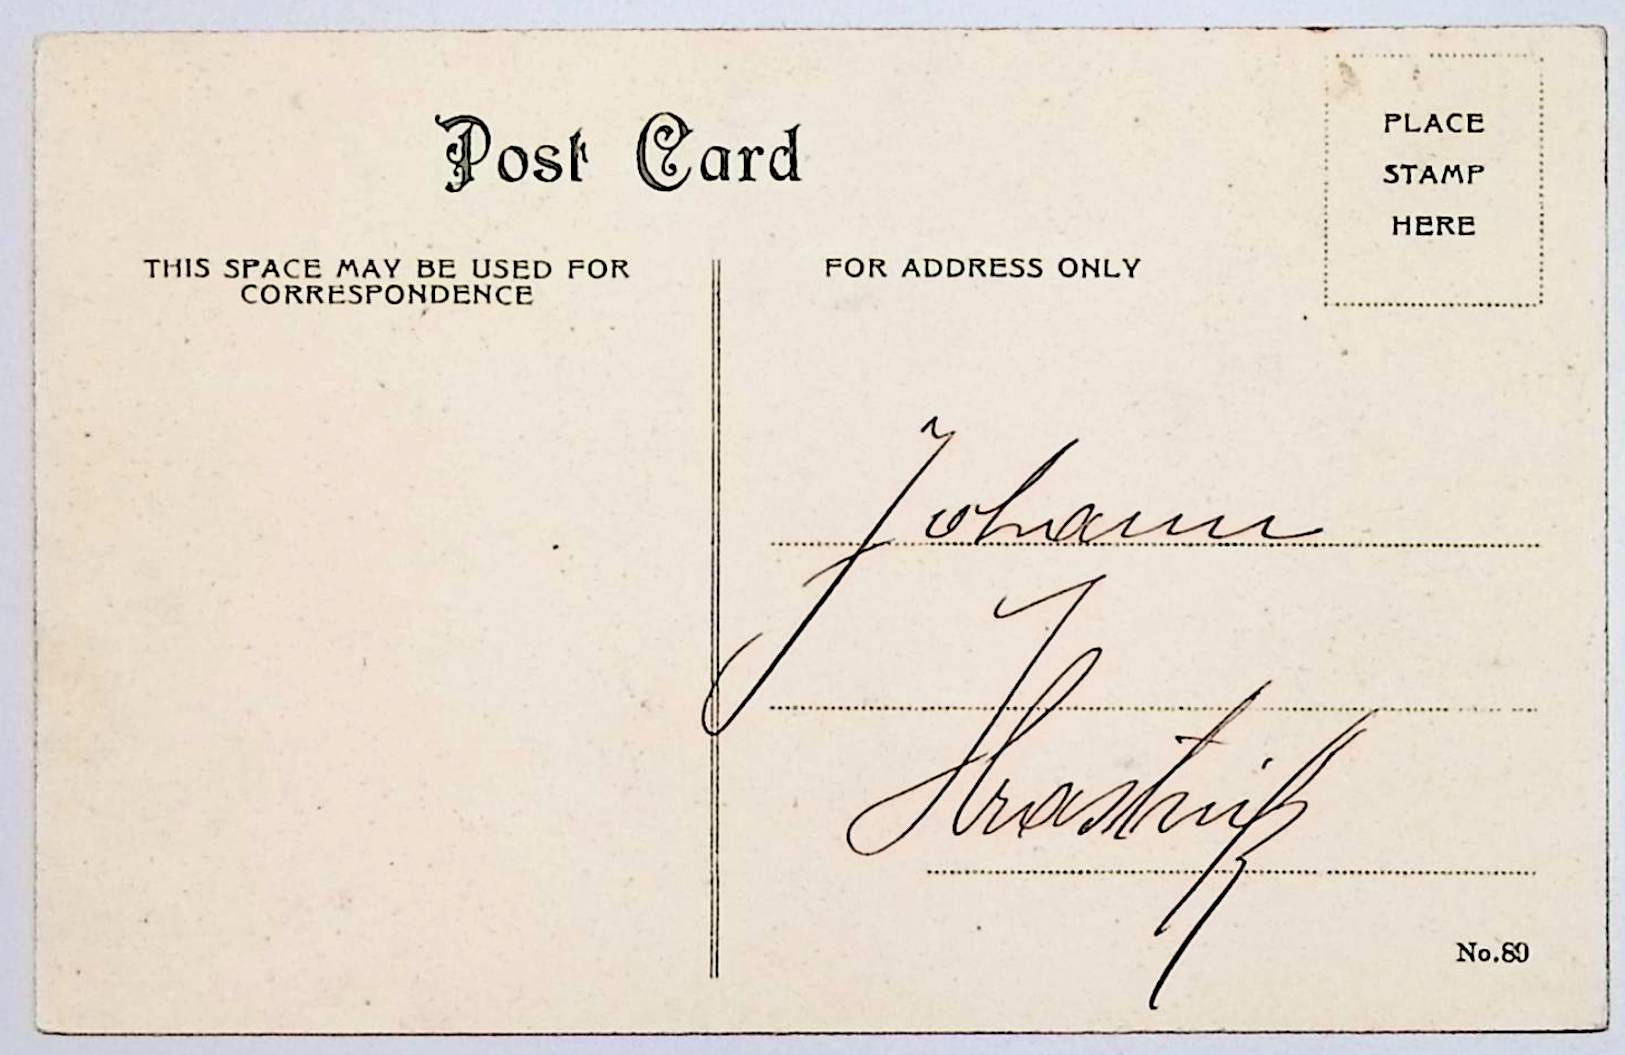 Post Card
PLACE
STAMP
HERE
THIS SPACE MAY BE USED FOR
CORRESPONDENCE
FOR ADDRESS ONLY
Johann
No.89